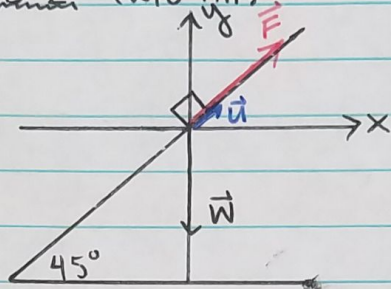 y
F⃗
u⃗
x
W⃗
45°